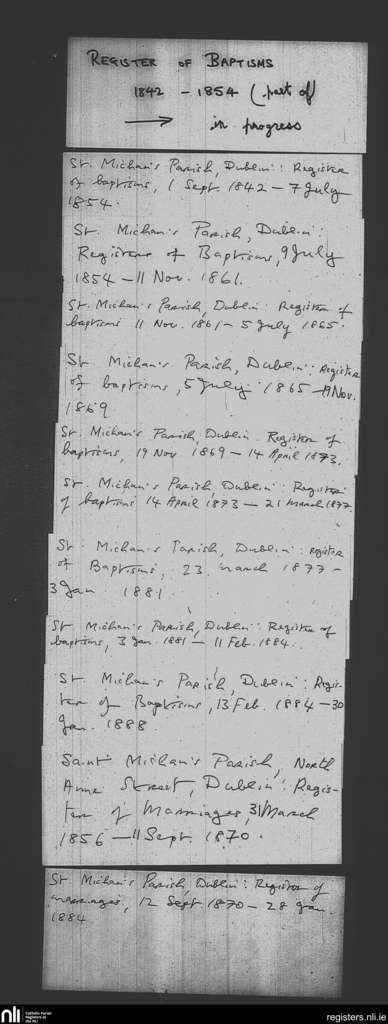 REGISTER OF BAPTISMS
1842 - 1854 (part of)
→ in progress
St. Michan's Parish, Dublin: Register
of baptisms, 1 Sept. 1842 - 7 July
1854.
St. Michan's Parish, Dublin:
Register of Baptisms, 9 July
1854 - 11 Nov. 1861.
St. Michan's Parish, Dublin: Register of
baptisms 11 Nov. 1861 - 5 July 1865.
St. Michan's Parish, Dublin: Register
of baptisms, 5 July 1865 - 19 Nov.
1869
St. Michan's Parish, Dublin: Register of
baptisms, 19 Nov 1869 - 14 April 1873.
St. Michan's Parish, Dublin: Register
of baptisms 14 April 1873 - 21 March 1877.
St. Michan's Parish, Dublin: register
of Baptisms, 23 March 1877 -
3 Jan 1881.
St. Michan's Parish, Dublin: Register of
baptisms, 3 Jan. 1881 - 11 Feb. 1884.
St. Michan's Parish, Dublin: Regis-
ter of Baptisms, 13 Feb. 1884 - 30
Jan. 1888.
Saint Michan's Parish, North
Anne Street, Dublin: Regis-
ter of Marriages, 31 March
1856 - 11 Sept. 1870.
St. Michan's Parish, Dublin: Register of
marriages, 12 Sept. 1870 - 28 Jan.
1884
nli
Catholic Parish
Registers at
the NLI
registers.nli.ie